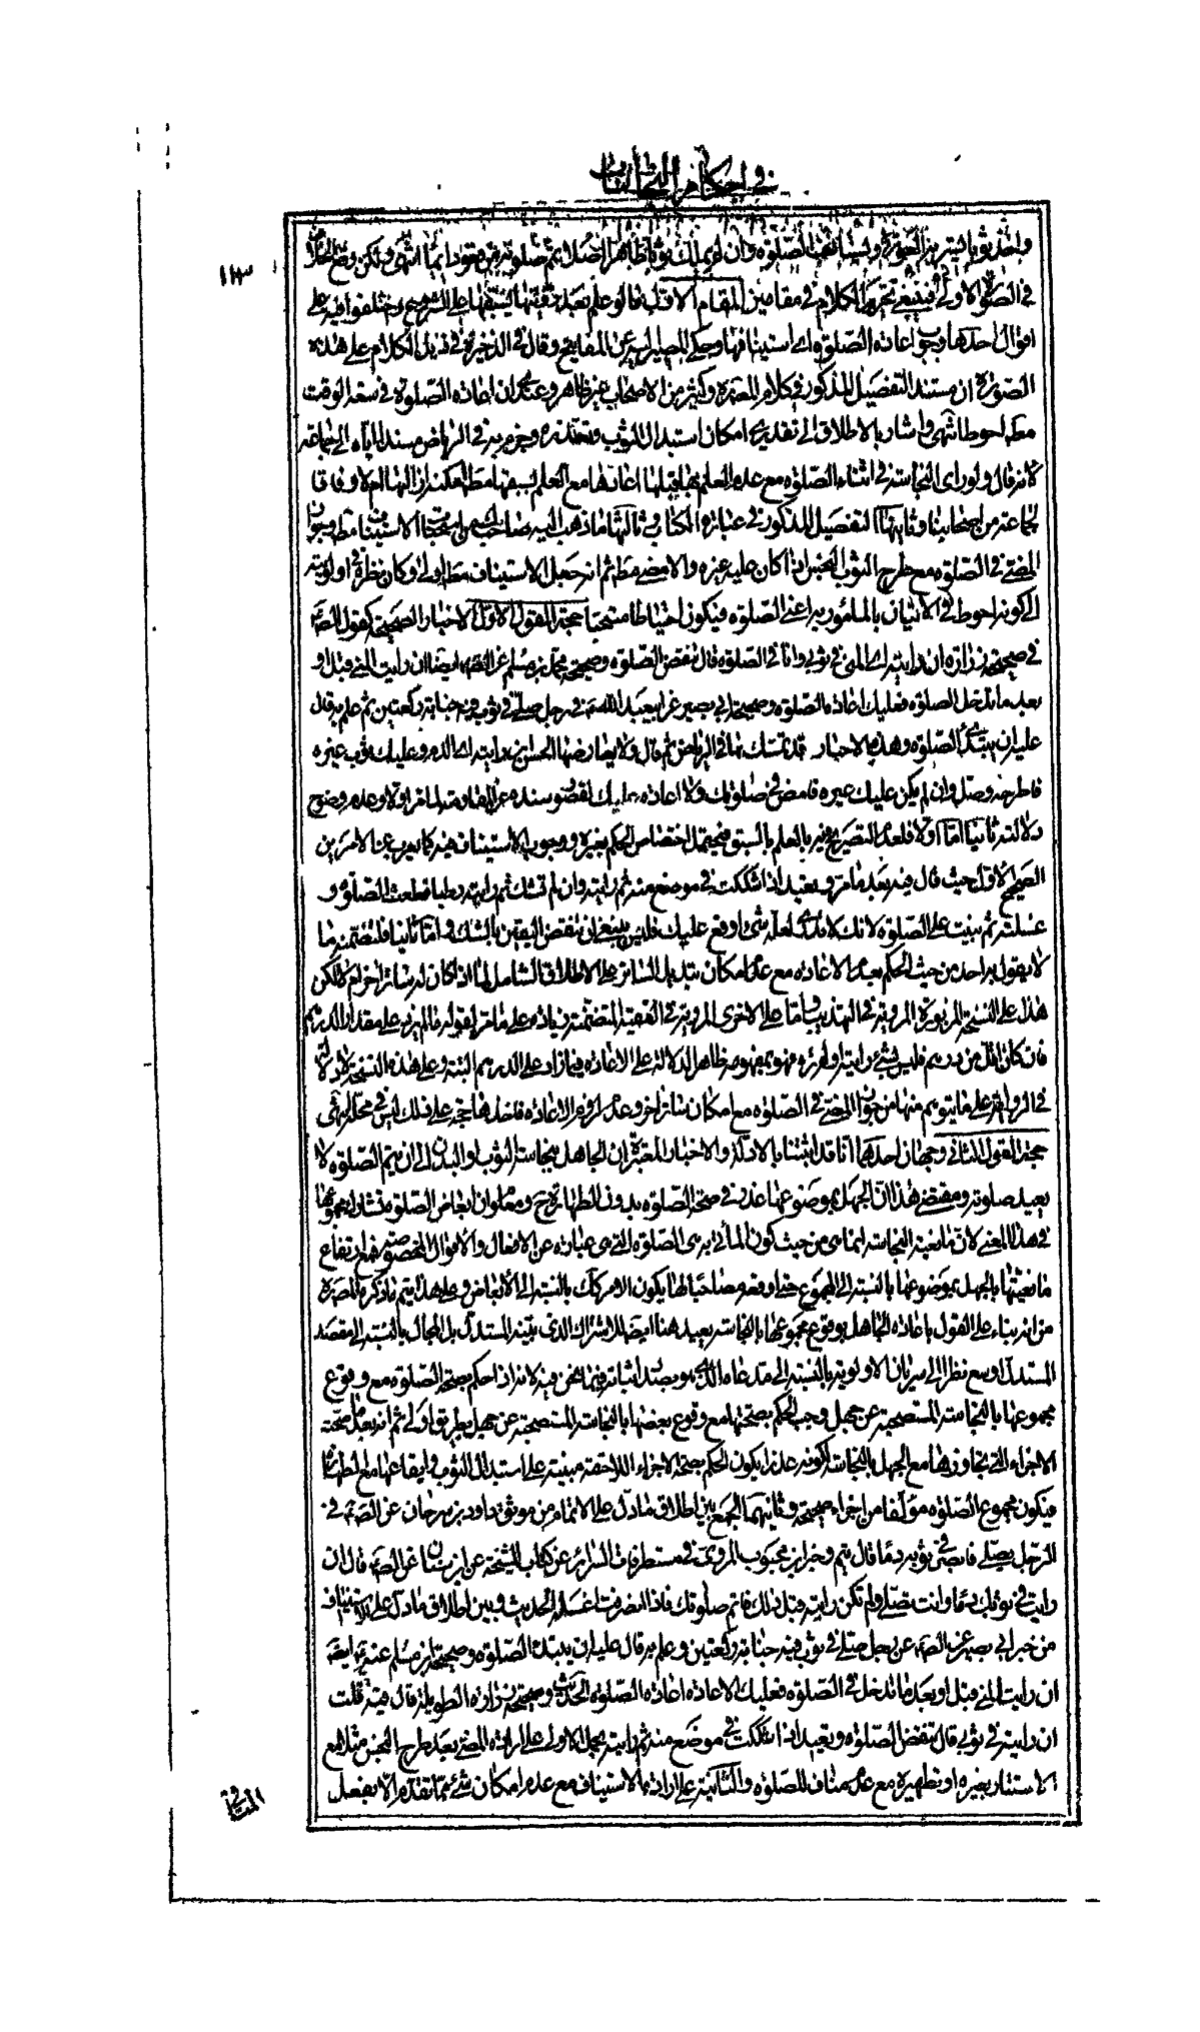 في احكام النجاسات
١١٣
في الصّورة الاولى فينبغي تحرير الكلام في مقامين المقام الاوّل فيما لو علم بعد رؤيتها بسبقها على الشروع واختلفوا فيه على
اقوال احدها وجوب اعادة الصّلوة واستينافها وحكى المصير اليه عن المفاتيح وقال في الذخيرة في ذيل الكلام على هذه
الصّورة ان مستند التفصيل المذكور في كلام المصنّف وكثير من الاصحاب غير ظاهر وعندي ان اعادة الصّلوة في سعة الوقت
مطلقا احوط انتهى واشار بالاطلاق الى تقديري امكان استبدال الثوب وتعذره وجزم به في الرياض مسندا اياه الى جماعة
لانه قال ولو راى النجاسة في اثناء الصّلوة مع عدم العلم بها قبلها اعادها مع العلم بسبقها مطلقا امكنه ازالتها ام لا وفاقا
لجماعة من اصحابنا وثانيها التفصيل المذكور في عبارة الكتاب وثالثها ما ذهب اليه صاحب من استحباب الاستيناف مطلقا وجواز
المضيّ في الصّلوة مع طرح الثوب النجس اذا كان عليه غيره والا مضى مطلقا ثم انه جعل الاستيناف مطلقا اولى وكان نظره في اولويته
الى كونه احوط في الاتيان بالمأمور به اعني الصّلوة فيكون احتياطا مستحبا حجة القول الاوّل الاخبار الصحيحة كقول الصّ
في صحيحة زرارة ان رايته اي المني في ثوبي وانا في الصّلوة قال تنقض الصّلوة وصحيحة محمّد بن مسلم عن الصّ ايضا ان رايت المني قبل او
بعد ما تدخل الصّلوة فعليك اعادة الصّلوة وصحيحة ابي بصير عن ابي عبد اللّه في رجل صلّى في ثوب فيه جنابة ركعتين ثم علم به قال
عليه ان يبتدئ الصّلوة وهذه الاخبار قد تمسك بها في الرياض ثم قال ولا يعارضها الحسن ان رايته اي الدم وعليك ثوب غيره
فاطرحه وصلّ وان لم يكن عليك غيره فامض في صلوتك ولا اعادة عليك لقصور سنده عن المقاومة لما مر اولا وعدم وضوح
دلالته ثانيا امّا اولا فلعدم التصريح فيه بالعلم بالسبق فيحتمل اختصاص الحكم بغيره ووجوب الاستيناف فيه كما يعرب عن الامرين
الصحيح الاوّل حيث قال فيه بعد ما مر وتعيد اذا شككت في موضع منه ثم رايته وان لم تشك ثم رايته رطبا قطعت الصّلوة و
غسلته ثم بنيت على الصّلوة لانك لا تدري لعله شئ اوقع عليك فليس ينبغي ان تنقض اليقين بالشك وامّا ثانيا فلتضمنه ما
لا يقول به احد من حيث الحكم بعدم الاعادة مع عدم امكان تبديل الساتر على الاطلاق الشامل لما اذا كان له ساتر اخر ام لا لكن
هذا على النسخة المزبورة المروية في التهذيب وامّا على الاخرى المروية في الفقيه المتضمنة زيادة على ما مر لقوله ما لم يزد على مقدار الدرهم
فان كان اقل من درهم فليس بشئ رايته او لم تره فهو بمفهومه ظاهر الدلالة على الاعادة فيما زاد على الدرهم البتة وعلى هذه النسخة لا دلالة
في الرواية على ما يتوهم منها من جواز المضيّ في الصّلوة مع امكان ساتر اخر وعدم لزوم الاعادة فاخذها حجة على ذلك ليس في محله انتهى
حجة القول الثاني وجهان احدهما انا قد اثبتنا بالادلة والاخبار المعتبرة ان الجاهل بنجاسة الثوب او البدن الى ان يتم الصّلوة لا
يعيد صلوته ومقتضى هذا ان الجهل بموضوعها عذر في صحة الصّلوة بدون الطهارة ح ومعلوم ان ابعاض الصّلوة تشارك مجموعها
في هذا المعنى لان مانعية النجاسة انما هي من حيث كون المأتي به هي الصّلوة التي هي عبارة عن الافعال والاقوال المخصوصة فمع ارتفاع
مانعيتها بالجهل بموضوعها بالنسبة الى المجموع حتى لو وقع مصاحبا لها يكون الامر كك بالنسبة الى الابعاض وعلى هذا يتم ما ذكره المصنّف
من انه بناء على القول باعادة الجاهل بوقوع مجموعها بالنجاسة يعيد هنا ايضا للاشتراك الذي بيّنه المستدل بل المجال بالنسبة الى مقصد
المستدل اوسع نظرا الى سريان الاولوية بالنسبة الى مدعاه الذي هو بصدد اثباته فيما نحن فيه لانه اذا حكم بصحة الصّلوة مع وقوع
مجموعها بالنجاسة المستصحبة عن جهل وجب الحكم بصحتها مع وقوع بعضها بالنجاسة المستصحبة عن جهل بطريق اولى ثم انه بعد صحة
الاجزاء التي تجاوزها مع الجهل بالنجاسة لكونه عذرا يكون الحكم بصحة الاجزاء اللاحقة مبنية على استبدال الثوب وايقاعها مع الطهارة
فيكون مجموع الصّلوة مؤلّفا من اجزاء صحيحة وثانيهما الجمع بين اطلاق ما دلّ على الاتمام من موثق داود بن سرحان عن الصّ في
الرّجل يصلي فابصر في ثوبه دما قال يتم وخبر ابن محبوب المرويّ في مستطرفات السرائر عن كتاب المشيخة عن ابن سنان عن الصّ قال ان
رايت في ثوبك دما وانت تصلي ولم تكن رايته قبل ذلك فاتم صلوتك فاذا انصرفت اغسله الحديث وبين اطلاق ما دلّ على الاستيناف
من خبر ابي بصير عن الصّ عن رجل صلّى في ثوب فيه جنابة ركعتين وعلم به قال عليه ان يبتدئ الصّلوة وصحيحة ابن مسلم عنه ايضا
ان رايت المني قبل او بعد ما تدخل في الصّلوة فعليك الاعادة اعادة الصّلوة الحديث وصحيحة زرارة الطويلة قال فيه قلت
ان رايته في ثوبي قال تنقض الصّلوة وتعيد اذا شككت في موضع منه ثم رايته بحمل الاولى على ارادة المضيّ بعد طرح النجس مثلا مع
الاستتار بغيره او تطهيره مع عدم مناف للصّلوة والثانية على ارادة الاستيناف مع عدم امكان شئ مما تقدّم الا بفعل
المنافي